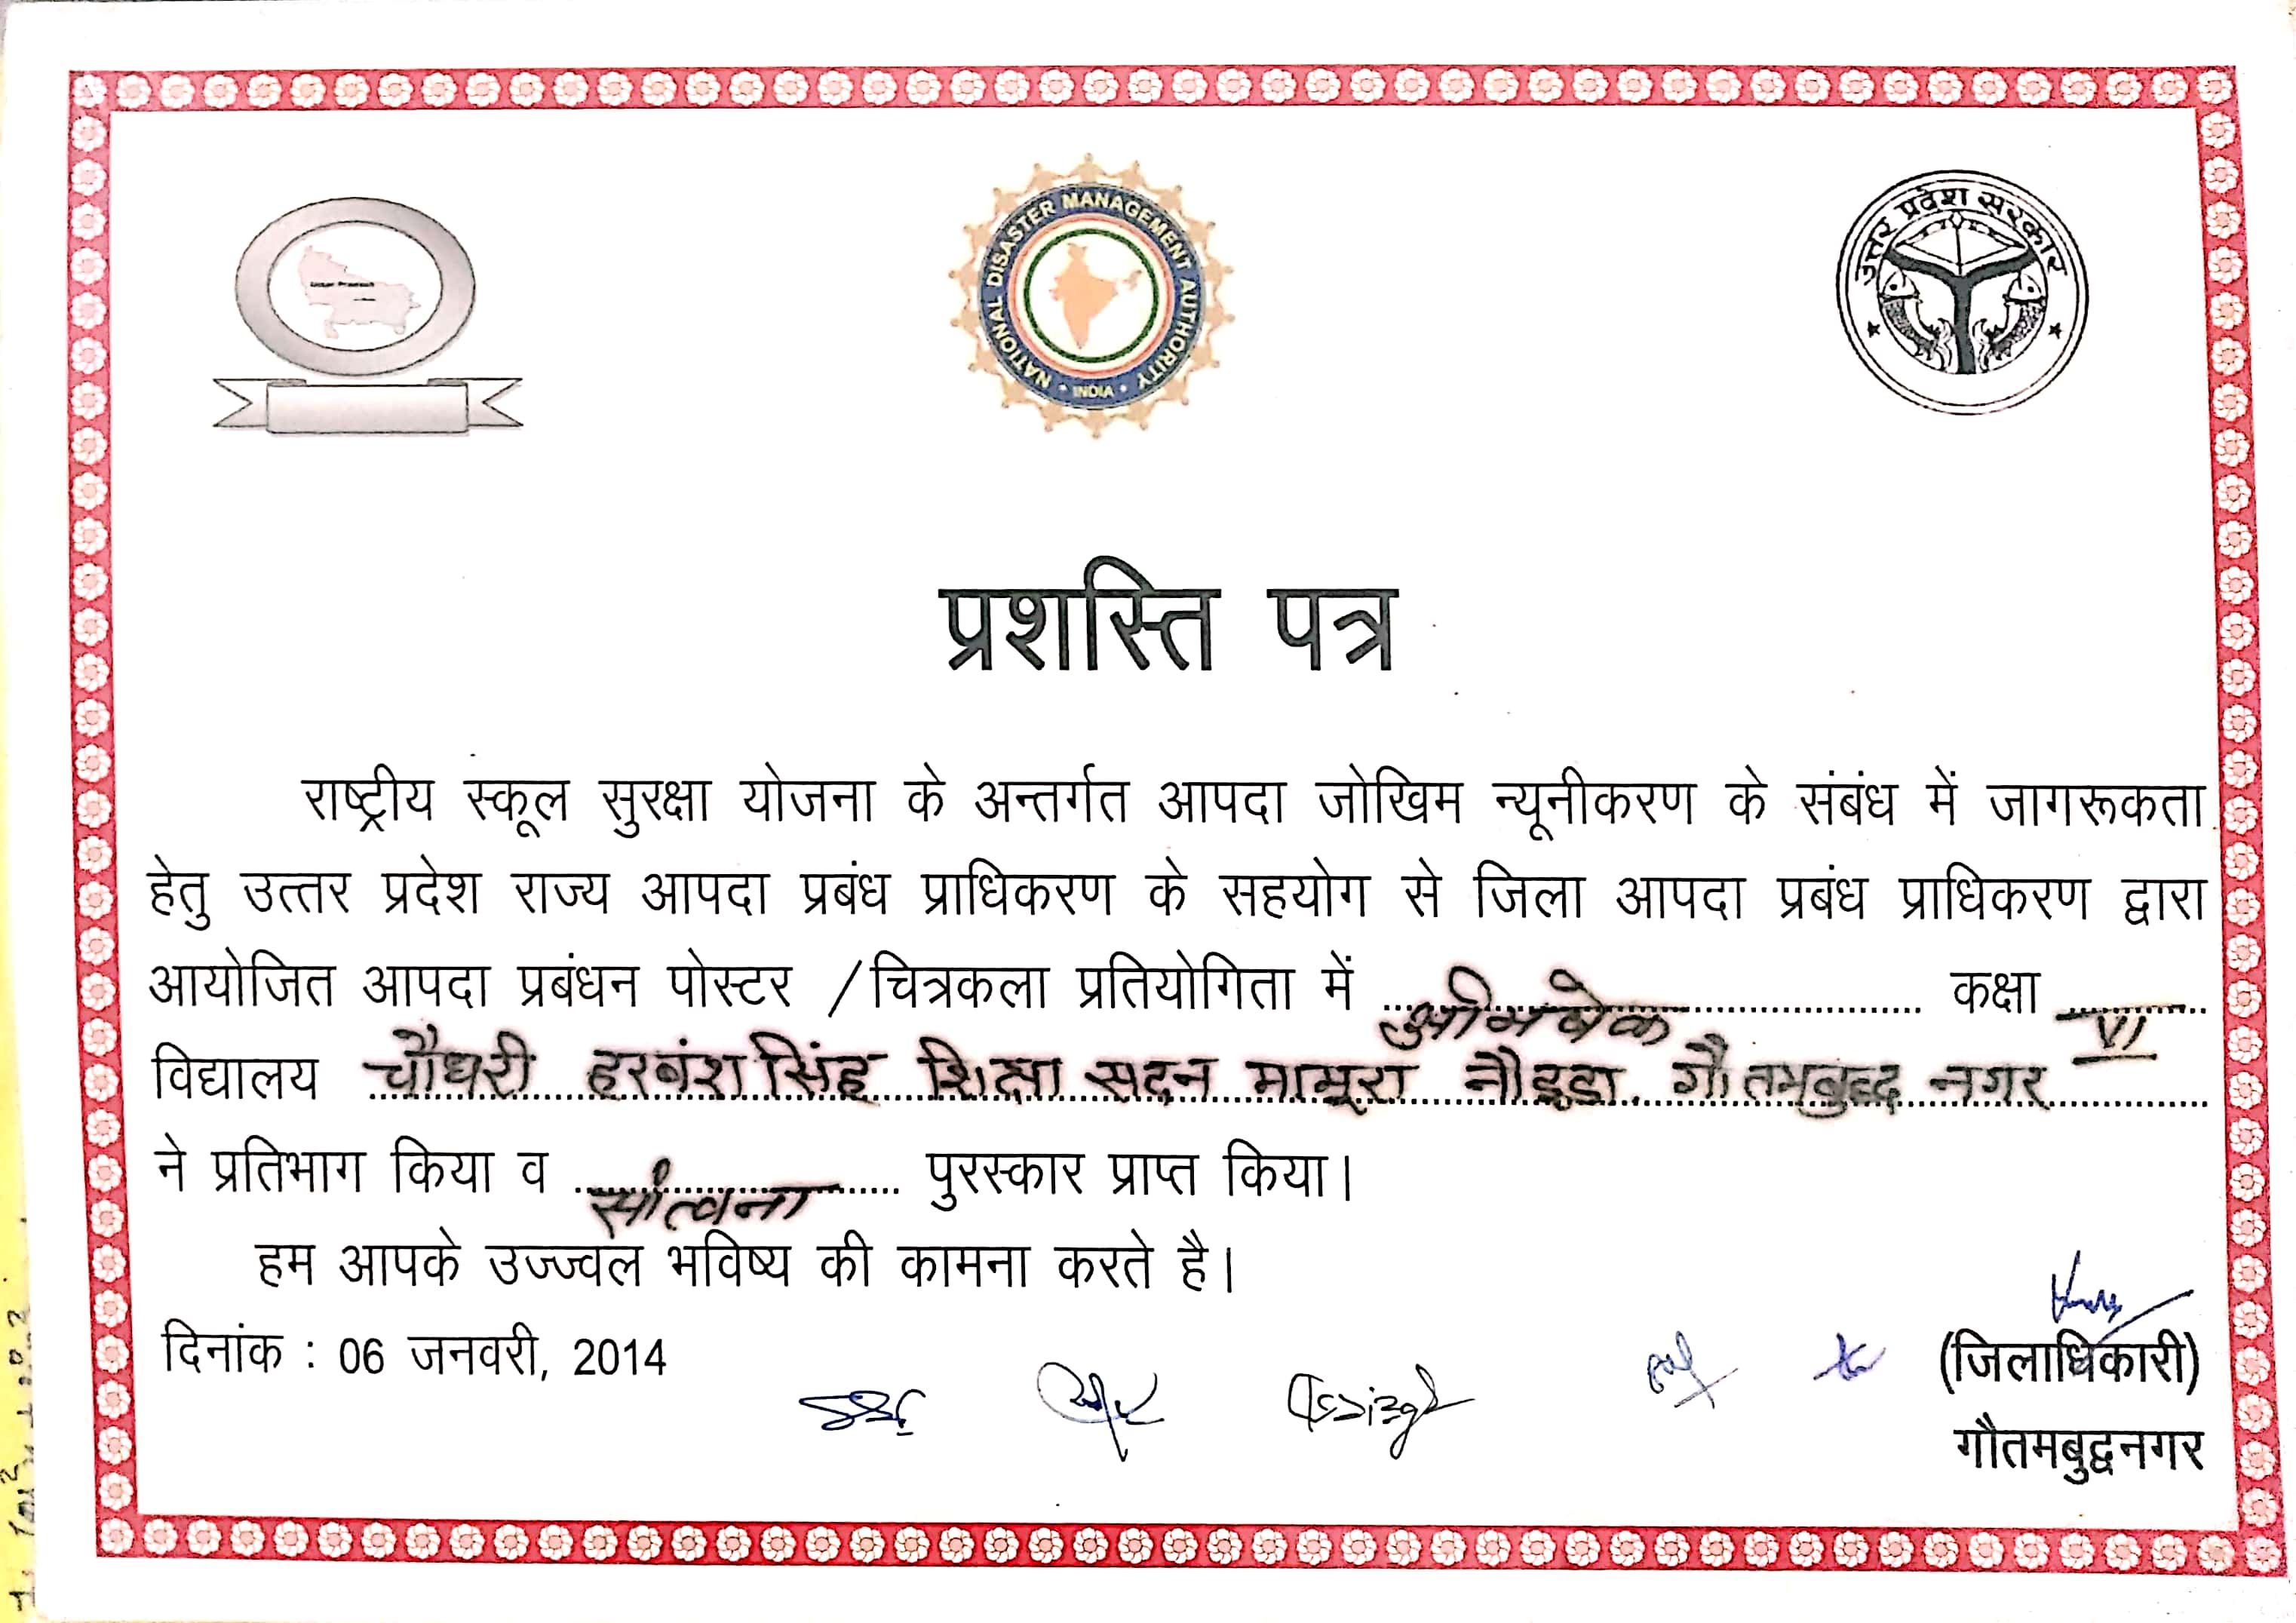 Uttar Pradesh
NATIONAL DISASTER MANAGEMENT AUTHORITY
INDIA
उत्तर प्रदेश सरकार
प्रशस्ति पत्र
राष्ट्रीय स्कूल सुरक्षा योजना के अन्तर्गत आपदा जोखिम न्यूनीकरण के संबंध में जागरूकता
हेतु उत्तर प्रदेश राज्य आपदा प्रबंध प्राधिकरण के सहयोग से जिला आपदा प्रबंध प्राधिकरण द्वारा
आयोजित आपदा प्रबंधन पोस्टर /चित्रकला प्रतियोगिता में कक्षा VI
विद्यालय चौधरी हरबंश सिंह शिक्षा सदन मामूरा नौइडा. गौतमबुद्ध नगर
ने प्रतिभाग किया व सांत्वना पुरस्कार प्राप्त किया।
हम आपके उज्ज्वल भविष्य की कामना करते है।
दिनांक : 06 जनवरी, 2014
(जिलाधिकारी)
गौतमबुद्वनगर